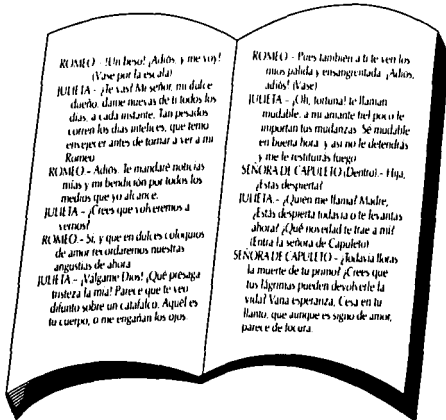 ROMEO - ¡Un beso! ¡Adiós, y me voy!
(Vase por la escala)
JULIETA - ¿Te vas? Mi señor, mi dulce
dueño, dame nuevas de ti todos los
días, a cada instante. Tan pesados
corren los días infelices, que temo
envejecer antes de tornar a ver a mi
Romeo
ROMEO.- Adiós. Te mandaré noticias
mías y mi bendición por todos los
medios que yo alcance.
JULIETA - ¿Crees que volveremos a
vernos?
ROMEO.- Sí, y que en dulces coloquios
de amor recordaremos nuestras
angustias de ahora
JULIETA - ¡Válgame Dios! ¡Qué présaga
tristeza la mía! Parece que te veo
difunto sobre un catafalco. Aquél es
tu cuerpo, o me engañan los ojos.
ROMEO - Pues también a ti te ven los
míos pálida y ensangrentada. ¡Adiós,
adiós! (Vase)
JULIETA - ¡Oh, fortuna! te llaman
mudable, a mi amante fiel poco le
importan tus mudanzas. Sé mudable
en buena hora, y así no le detendrás
y me le restituirás luego
SEÑORA DE CAPULETO (Dentro) - Hija,
¿Estás despierta?
JULIETA.- ¿Quién me llama? Madre,
¿Estás despierta todavía o te levantas
ahora? ¿Qué novedad te trae a mí?
(Entra la señora de Capuleto)
SEÑORA DE CAPULETO - ¿Todavía lloras
la muerte de tu primo? ¿Crees que
tus lágrimas pueden devolverle la
vida? Vana esperanza. Cesa en tu
llanto, que aunque es signo de amor,
parece de locura.